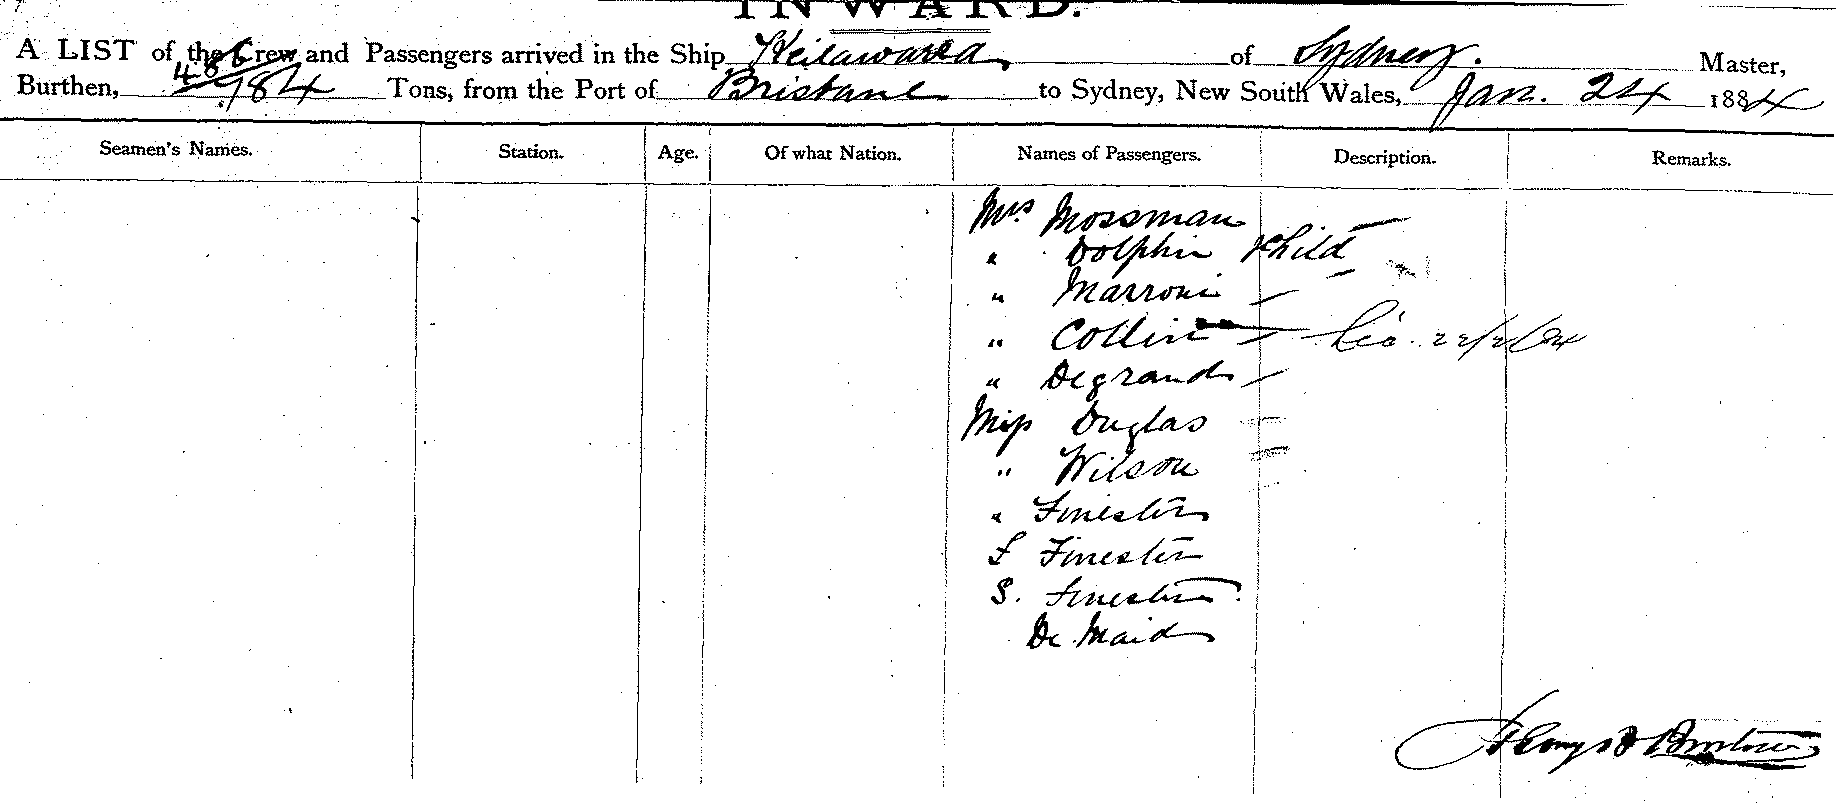 INWARD.
A LIST of the Crew and Passengers arrived in the Ship Keilawarra of Sydney. Master,
Burthen, 784 Tons, from the Port of Brisbane to Sydney, New South Wales, Jan. 24 1884
Seamen's Names. Station. Age. Of what Nation. Names of Passengers. Description. Remarks.
Mrs Mossman
" Dolphin & Child
" Marroni
" Collin 22/2/84
" Degrands
Miss Duglas
" Wilson
" Finester
F Finester
S. Finester
De Maid